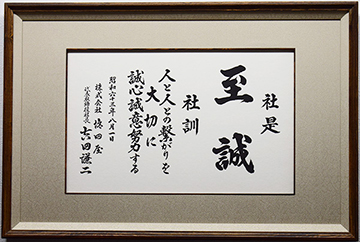 社是
至誠
社訓
人と人との繋がりを
大切に
誠心誠意努力する
昭和六十三年八月一日
株式会社 徳田屋
代表取締役社長 吉田謙二